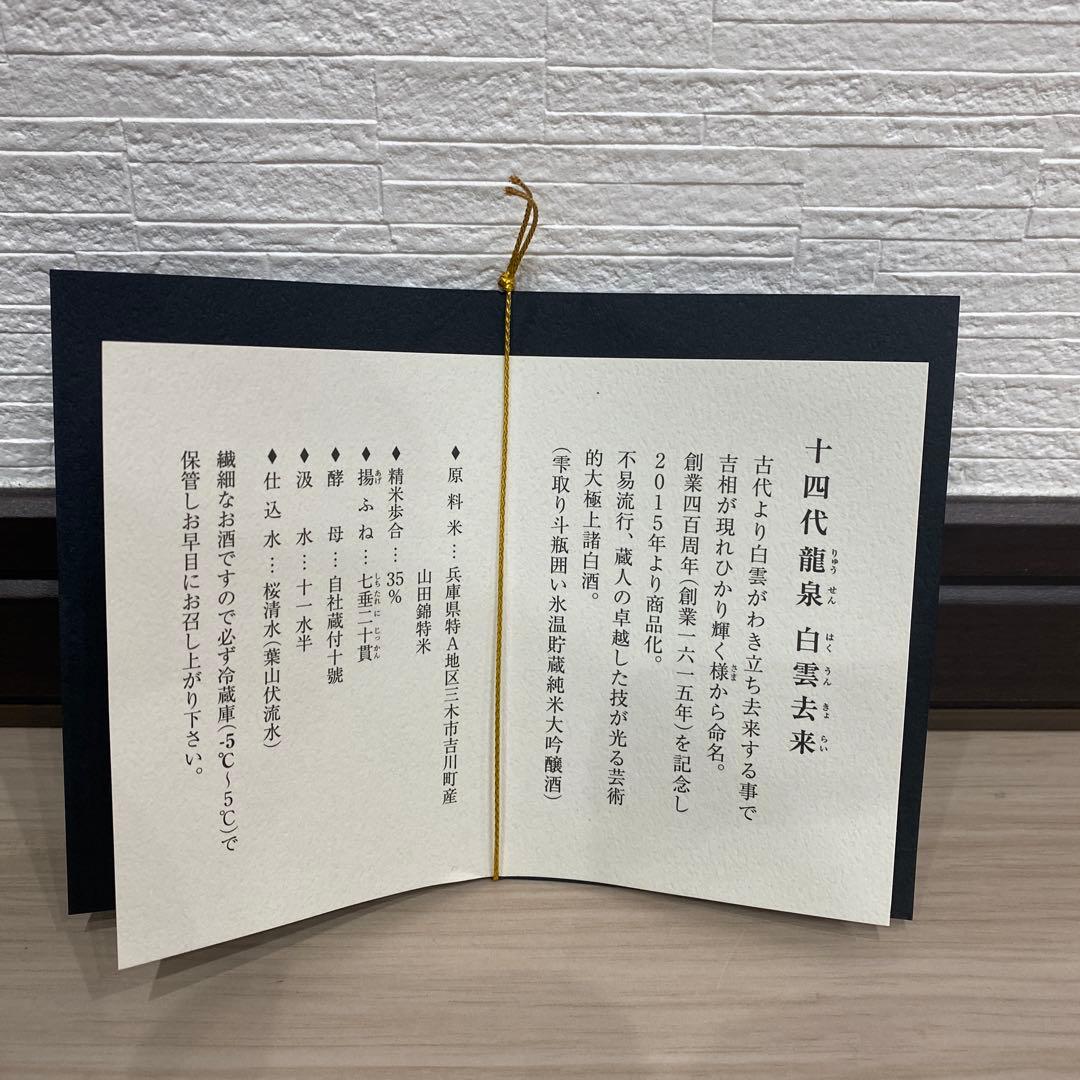 十四代 龍泉 白雲去来
りゅう せん はく うん きょ らい
古代より白雲がわき立ち去来する事で
吉相が現れひかり輝く様から命名。
さま
創業四百周年(創業一六一五年)を記念し
2015年より商品化。
不易流行、蔵人の卓越した技が光る芸術
的大極上諸白酒。
(雫取り斗瓶囲い氷温貯蔵純米大吟醸酒)
♦原料米…兵庫県特A地区三木市吉川町産
山田錦特米
♦精米歩合…35%
♦揚ふね…七垂二十貫
あげ しちたれ に じっかん
♦酵母…自社蔵付十號
♦汲水…十一水半
♦仕込水…桜清水(葉山伏流水)
繊細なお酒ですので必ず冷蔵庫(-5℃〜5℃)で
保管しお早目にお召し上がり下さい。